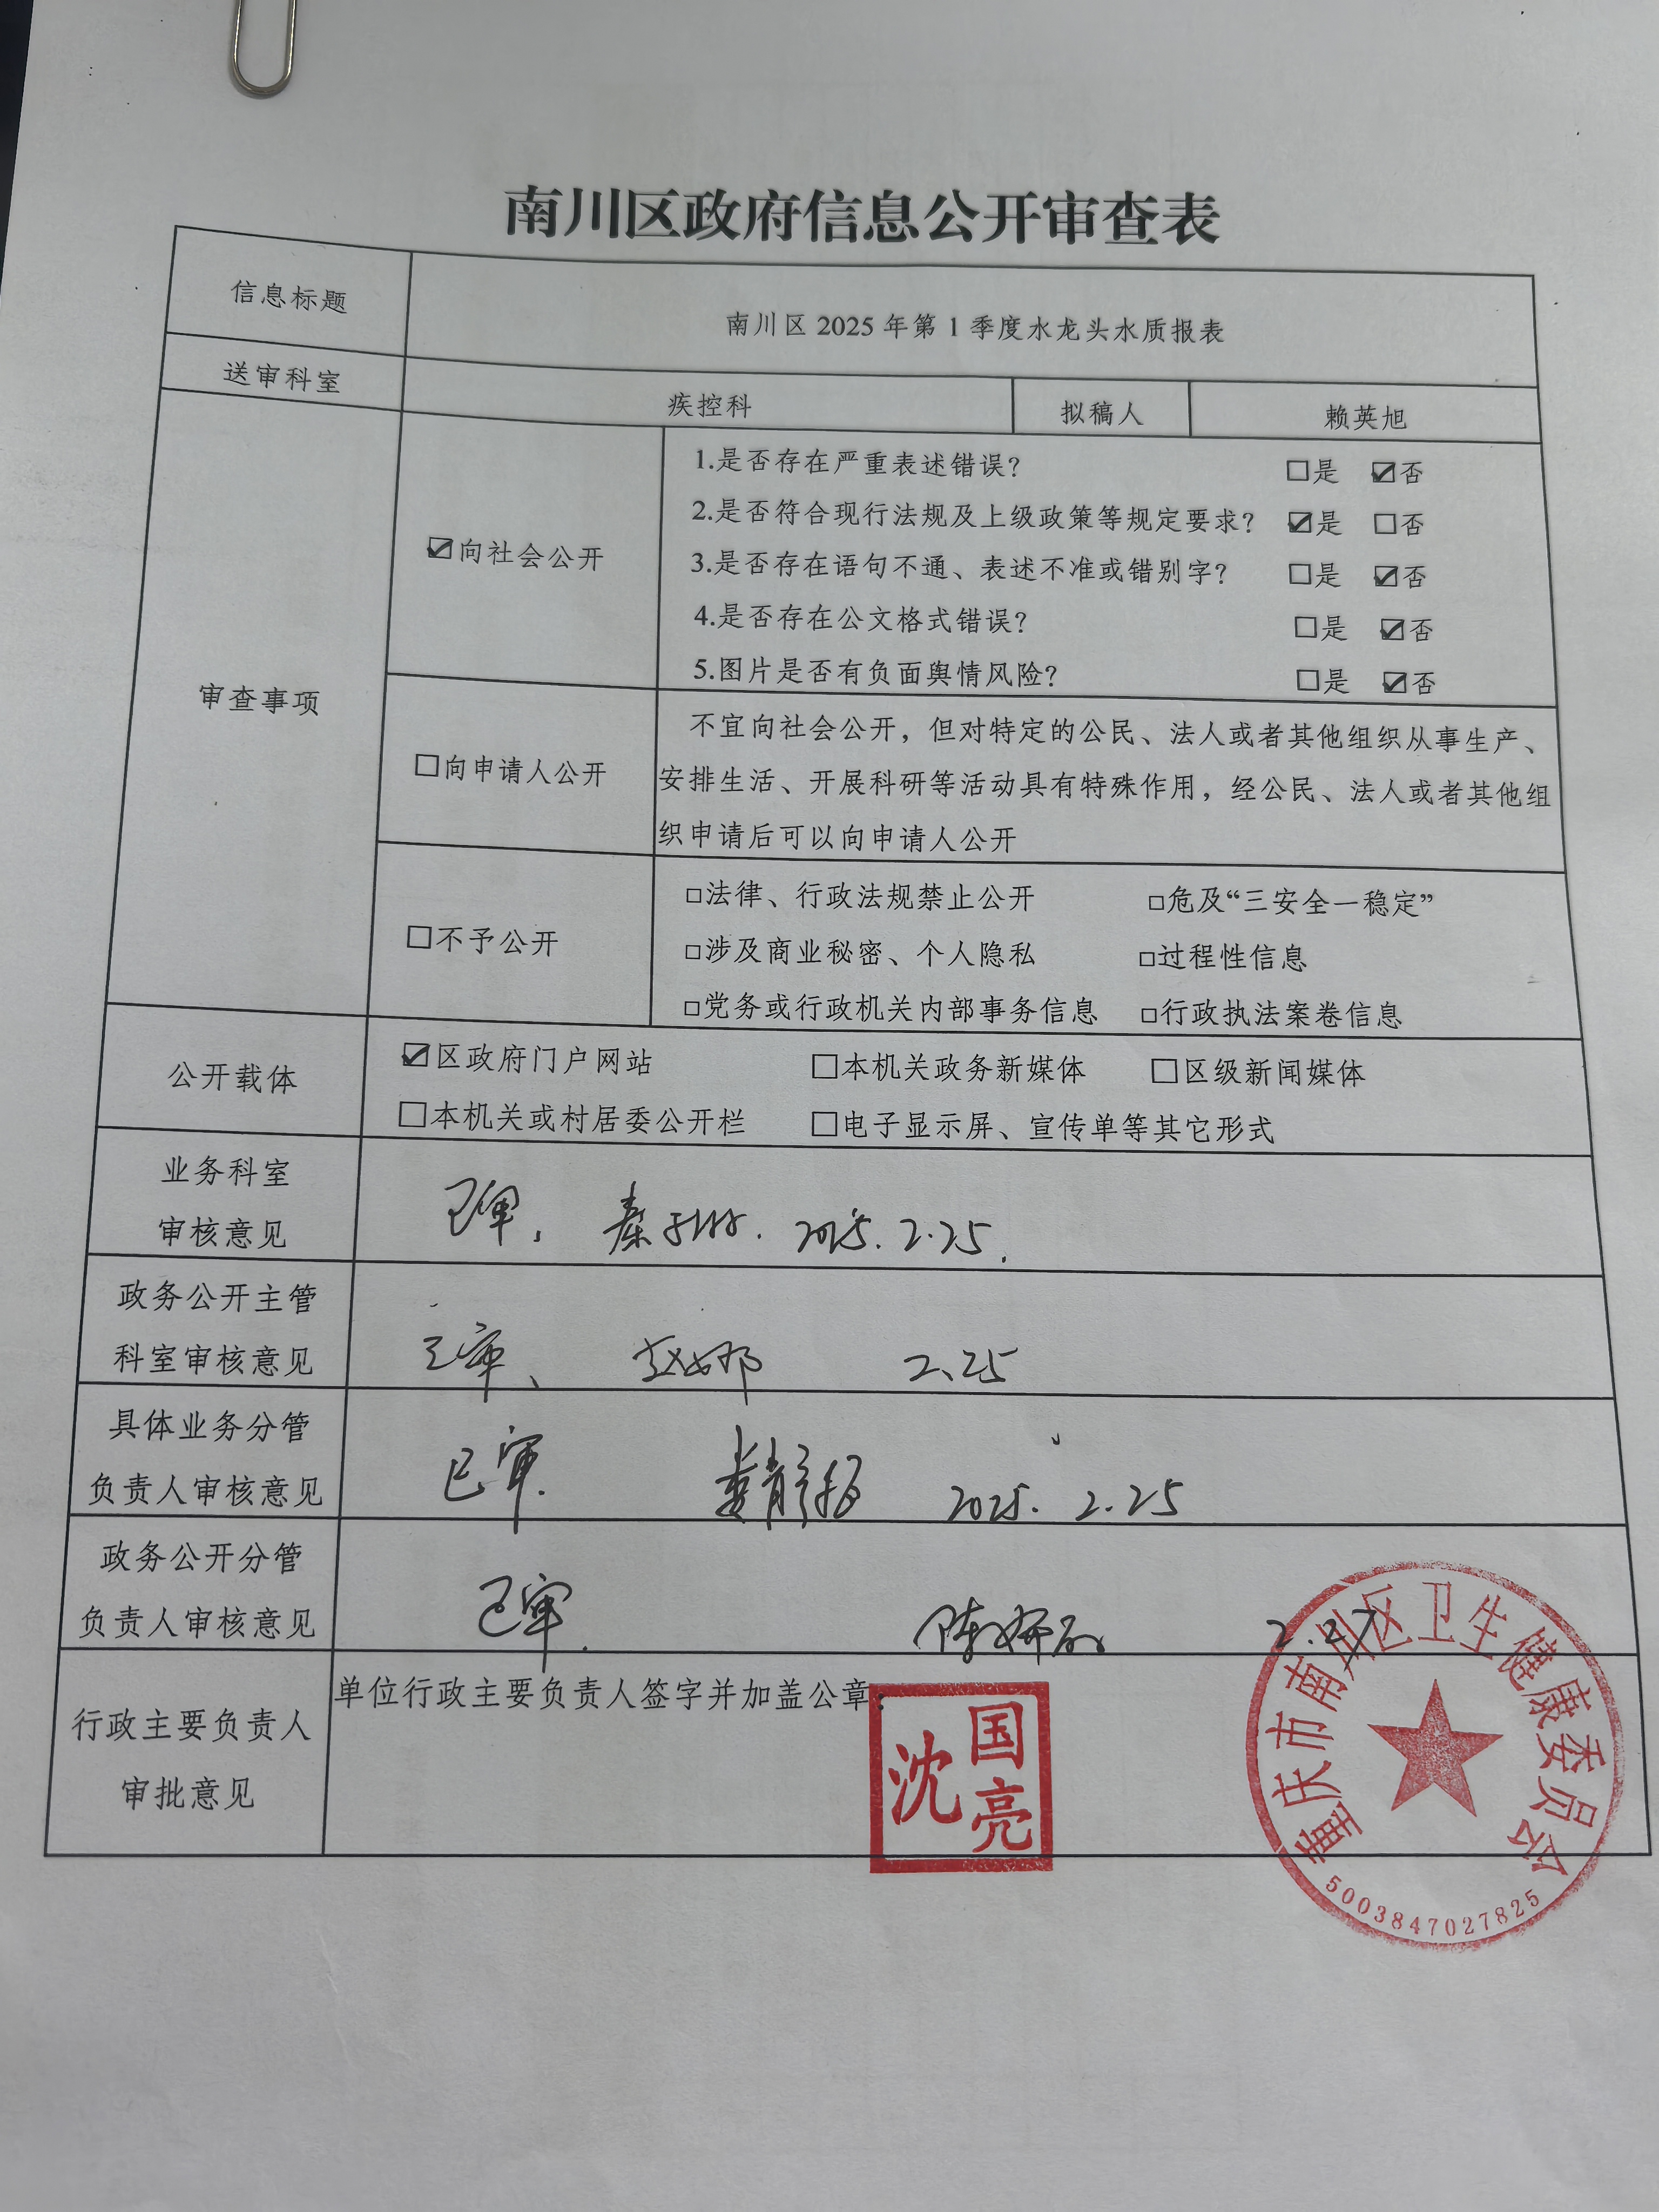 南川区政府信息公开审查表
信息标题
南川区 2025 年第 1 季度水龙头水质报表
送审科室
疾控科
拟稿人
赖英旭
审查事项
☑向社会公开
1.是否存在严重表述错误？ □是 ☑否
2.是否符合现行法规及上级政策等规定要求？ ☑是 □否
3.是否存在语句不通、表述不准或错别字？ □是 ☑否
4.是否存在公文格式错误？ □是 ☑否
5.图片是否有负面舆情风险？ □是 ☑否
□向申请人公开
不宜向社会公开，但对特定的公民、法人或者其他组织从事生产、
安排生活、开展科研等活动具有特殊作用，经公民、法人或者其他组
织申请后可以向申请人公开
□不予公开
□法律、行政法规禁止公开 □危及“三安全一稳定”
□涉及商业秘密、个人隐私 □过程性信息
□党务或行政机关内部事务信息 □行政执法案卷信息
公开载体
☑区政府门户网站 □本机关政务新媒体 □区级新闻媒体
□本机关或村居委公开栏 □电子显示屏、宣传单等其它形式
业务科室
审核意见
已审， 2025.2.25.
政务公开主管
科室审核意见
已审、 赵娜 2.25
具体业务分管
负责人审核意见
已审. 2025. 2.25
政务公开分管
负责人审核意见
已审. 2.27
行政主要负责人
审批意见
单位行政主要负责人签字并加盖公章：
沈国亮
重庆市南川区卫生健康委员会
5003847027825